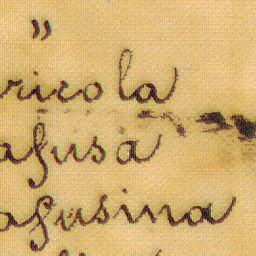 "
ricola
afusa
afusina